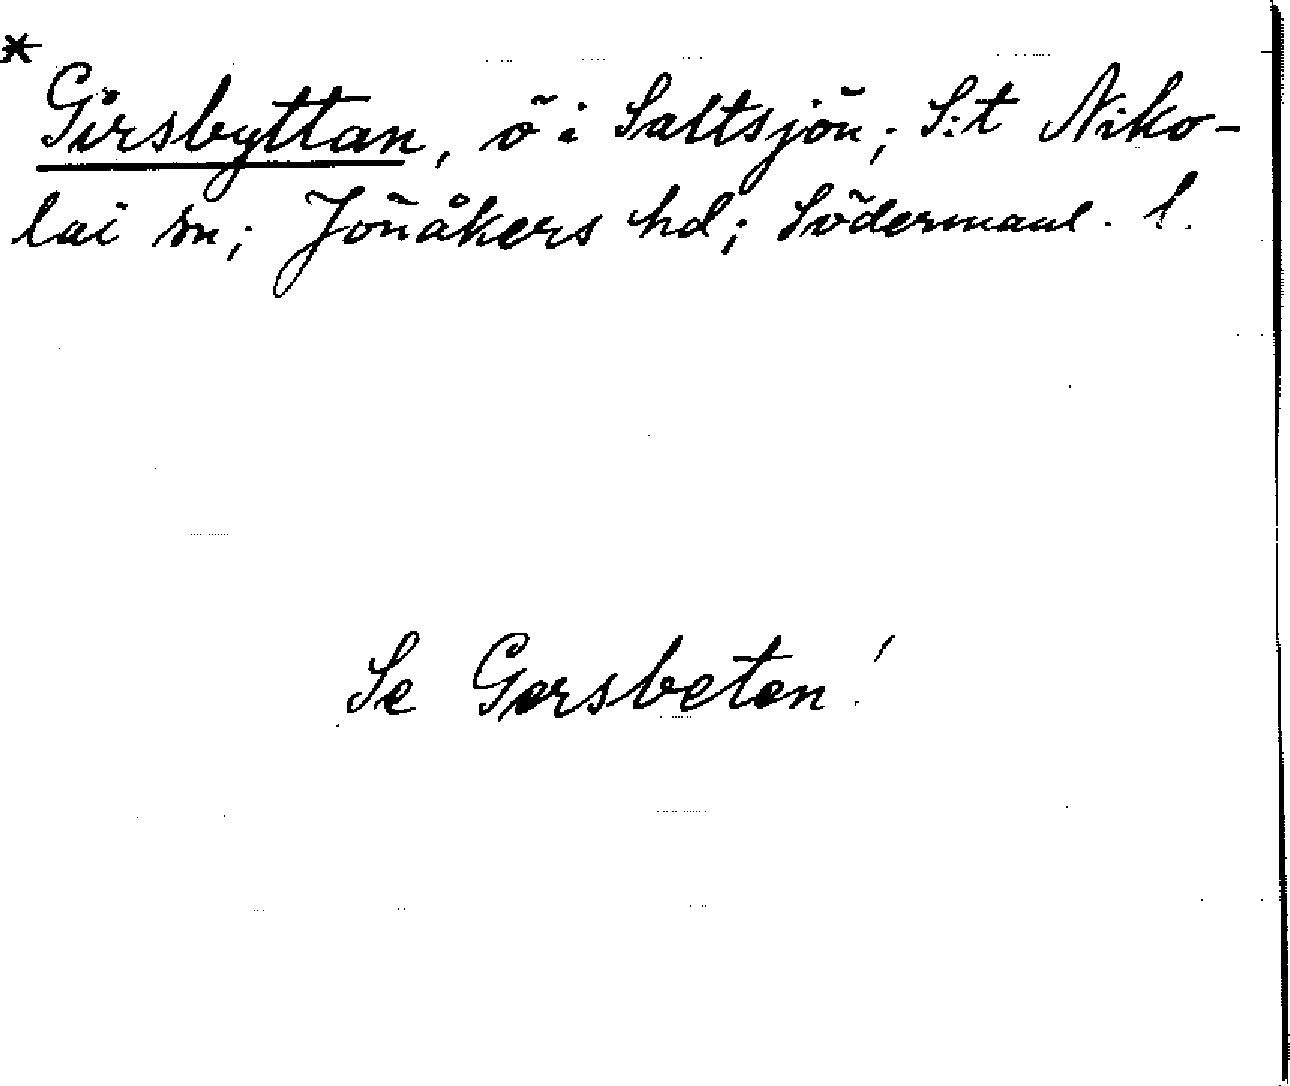 * Girsbyttan, ö i Saltsjön; S:t Niko-
lai sn; Jönåkers hd; Södermanl. l.
Se Gersbeten!